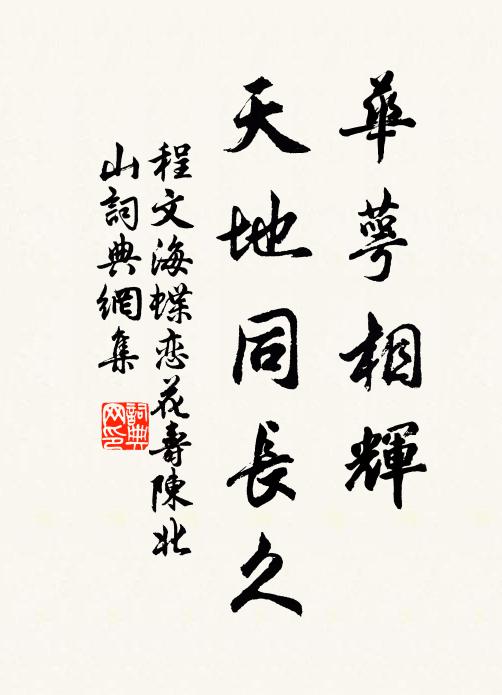 華萼相輝
天地同長久
程文海蝶恋花壽陳北
山詞典網集
詞典
网印